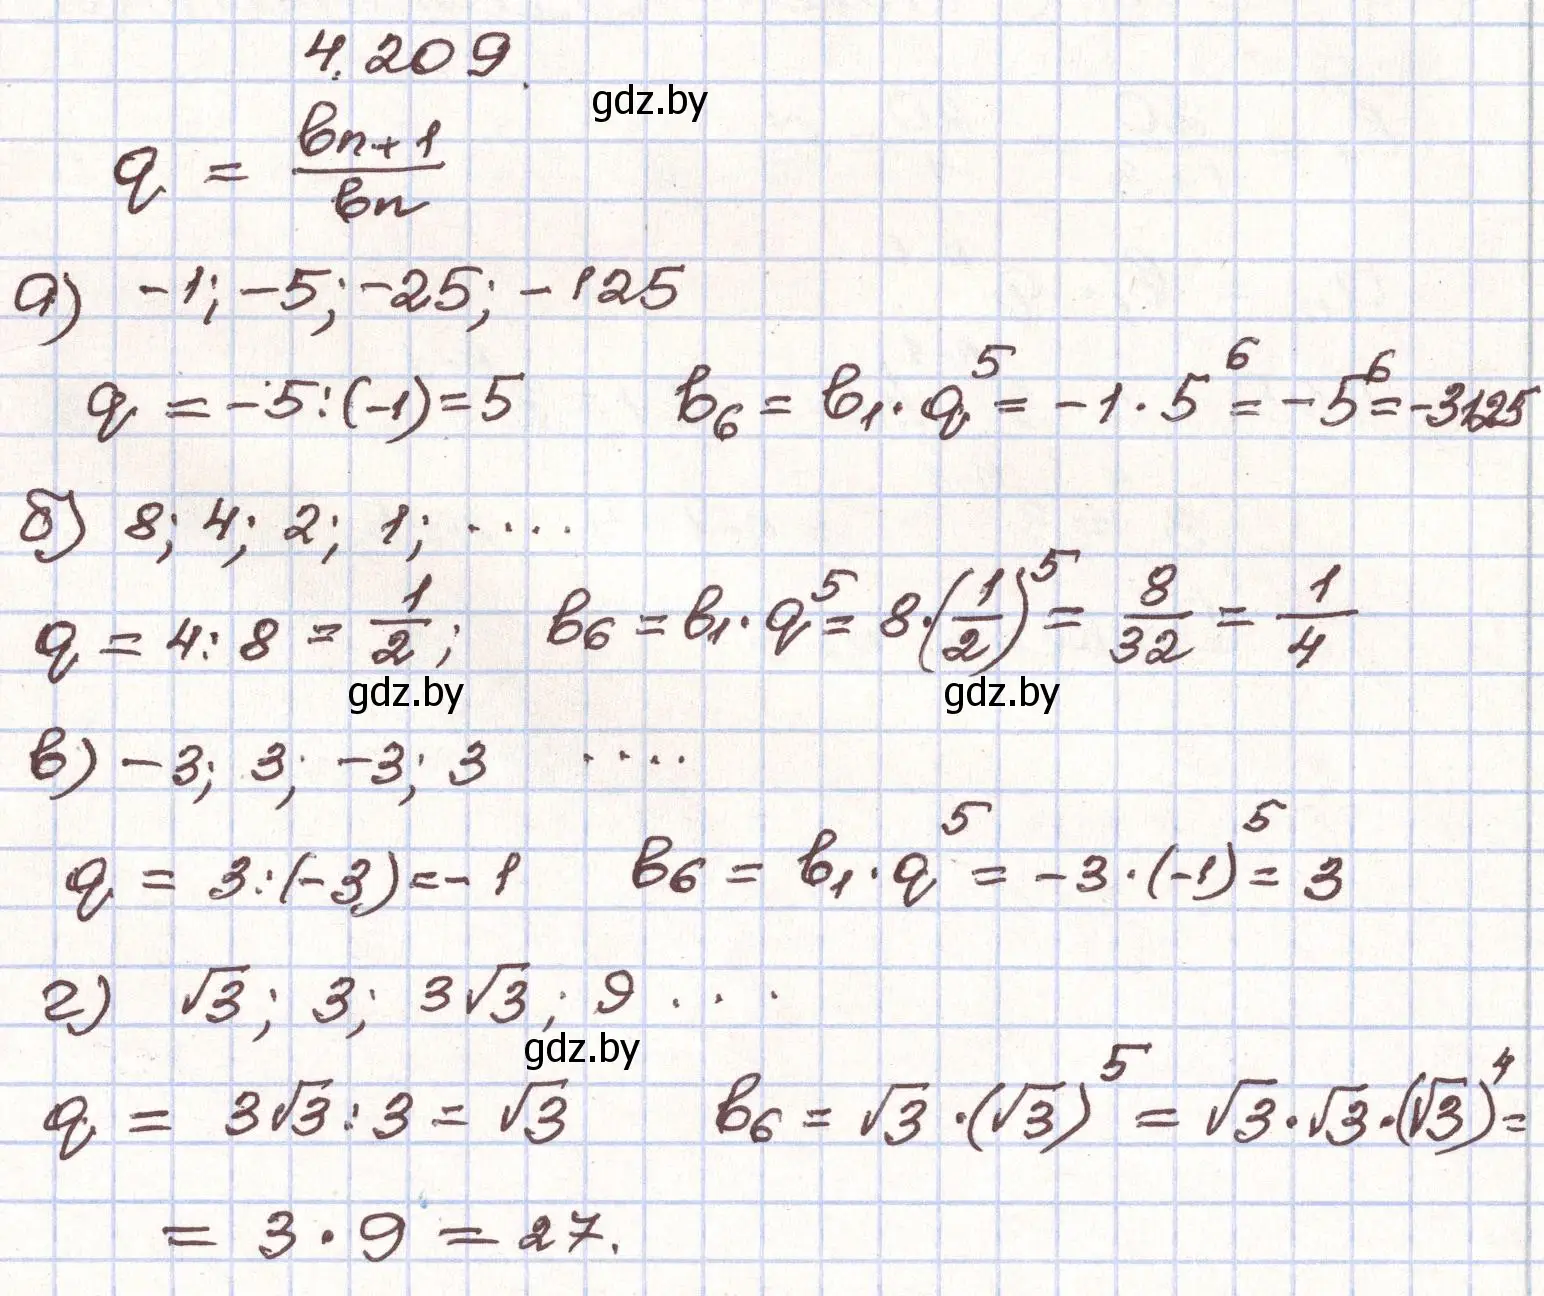 4.209.
gdz.by
q = bn+1 / bn
а) -1; -5; -25; -125
q = -5:(-1)=5 b₆ = b₁·q⁵ = -1·5⁶ = -5⁶ = -3125
б) 8; 4; 2; 1; ....
q = 4:8 = 1/2; b₆ = b₁·q⁵ = 8·(1/2)⁵ = 8/32 = 1/4
gdz.by gdz.by
в) -3; 3; -3; 3 ....
q = 3:(-3)=-1 b₆ = b₁·q⁵ = -3·(-1)⁵ = 3
г) √3; 3; 3√3; 9 ...
gdz.by
q = 3√3:3 = √3 b₆ = √3·(√3)⁵ = √3·√3·(√3)⁴ =
= 3·9 = 27.